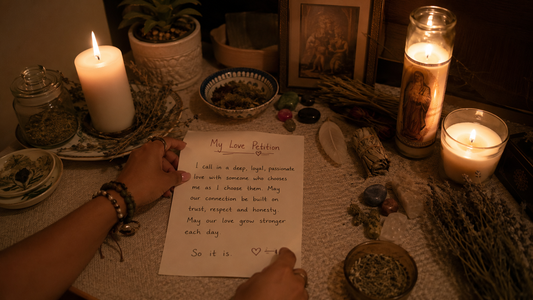 My Love Petition
I call in a deep, loyal, passionate
love with someone who chooses
me as I choose them. May
our connection be built on
trust, respect and honesty.
May our love grow stronger
each day.
So it is.